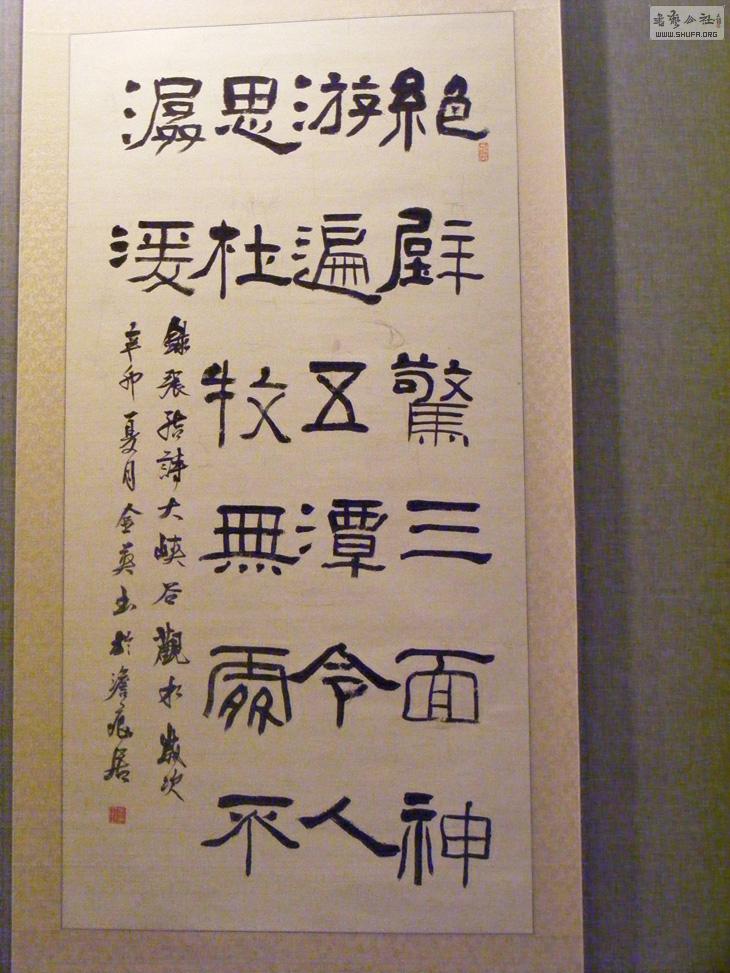 絕壁驚三面神
游遍五潭令人
思杜牧無雨不
潺湲
録張詩大峽谷觀水歲次
辛卯夏月金英书於澹居
書藝公社
WWW.SHUFA.ORG